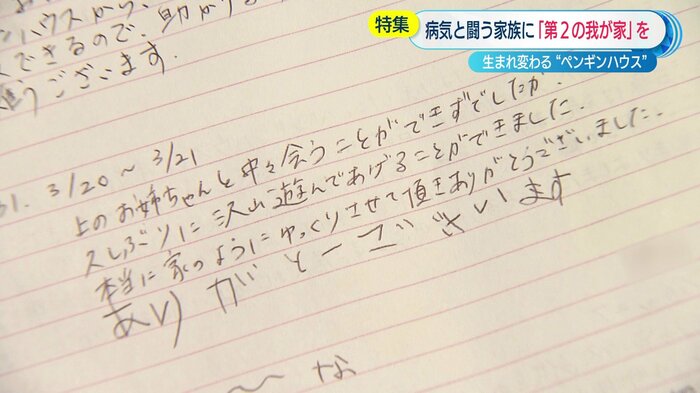 特集
病気と闘う家族に「第2の我が家」を
生まれ変わる“ペンギンハウス”
ハウスから、
できるので、助かり
ございます.
31. 3/20 ～ 3/21
上のお姉ちゃんと中々会うことができずでしたが.
久しぶりに沢山遊んであげることができました.
本当に家のようにゆっくりさせて頂きありがとうございました.
ありがとーございます
～ な